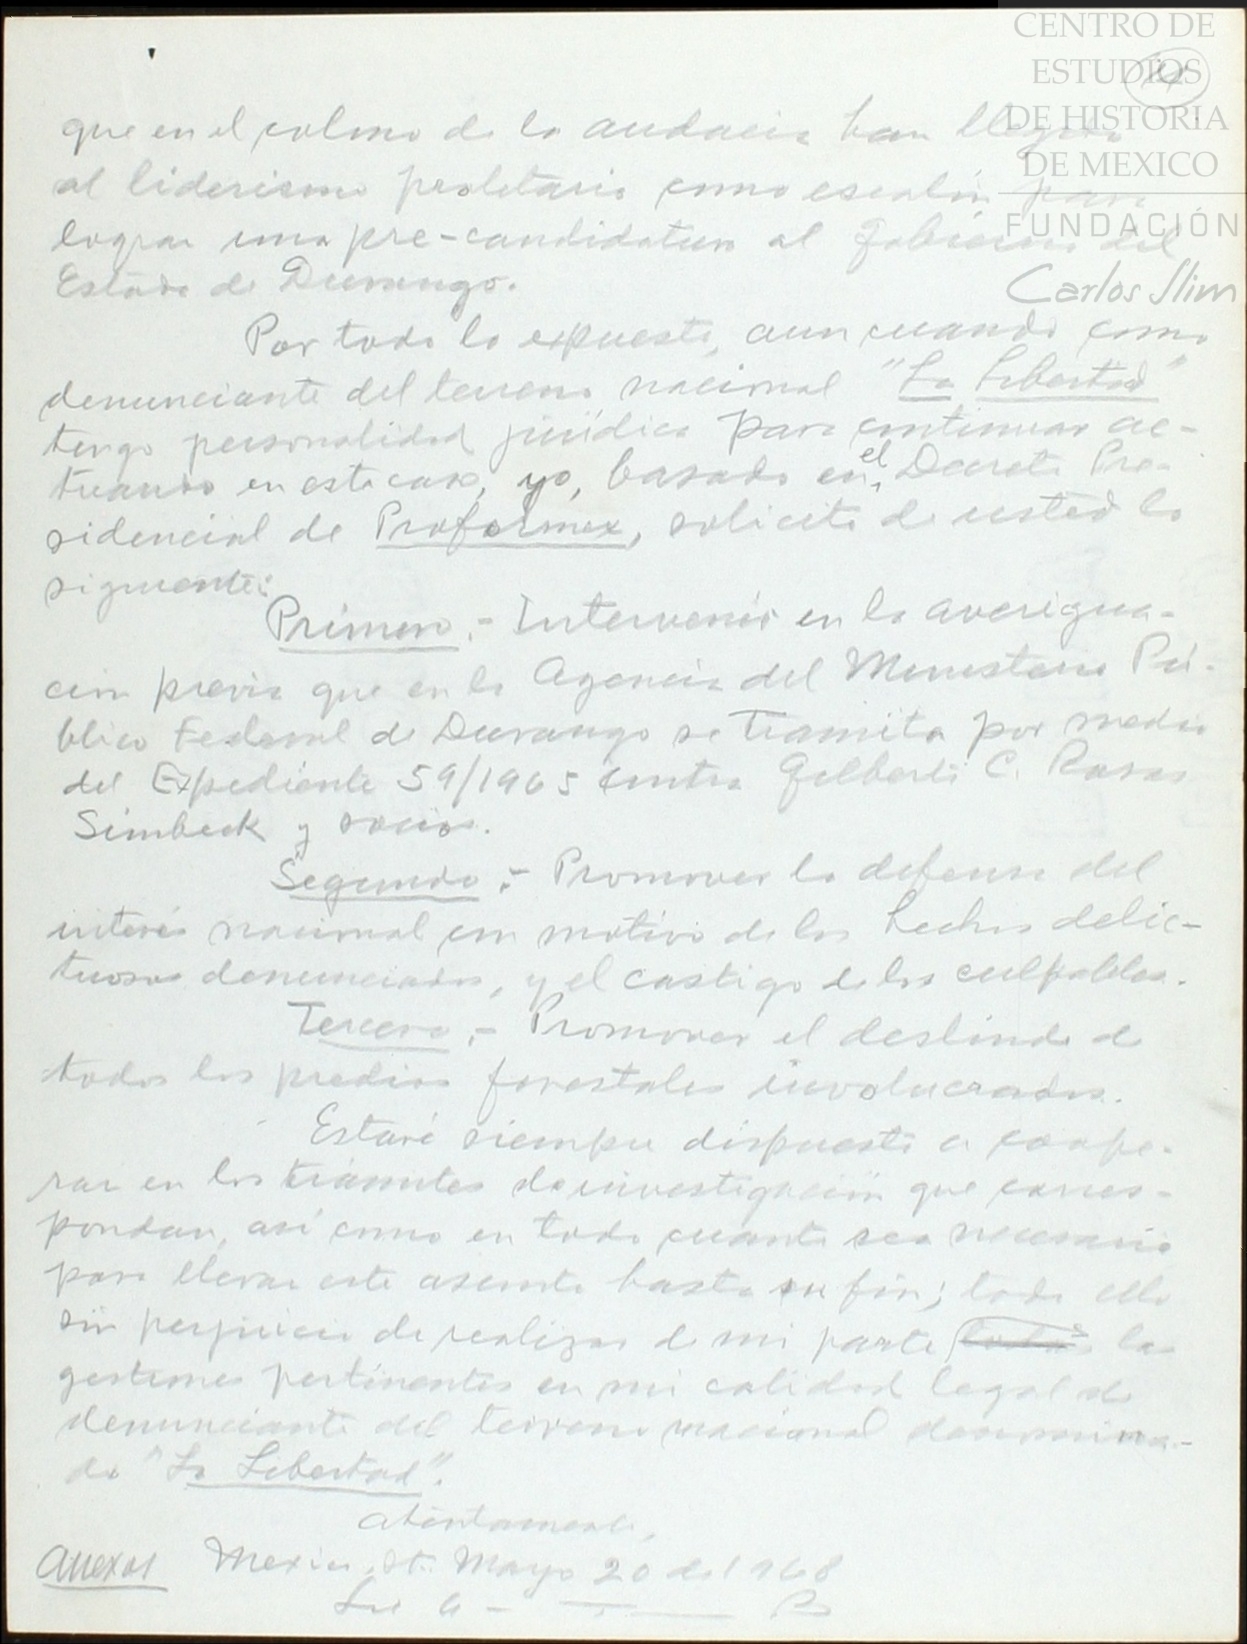 CENTRO DE
ESTUDIOS
DE HISTORIA
DE MEXICO
FUNDACIÓN
Carlos Slim
que en el colmo de la audacia han llegado
al liderismo proletario como escalón para
lograr una pre-candidatura al Gobierno del
Estado de Durango.
Por todo lo expuesto, aun cuando como
denunciante del terreno nacional "La Libertad"
tengo personalidad jurídica para continuar ac-
tuando en este caso, yo, basado en el Decreto Pre-
sidencial de Proformex, solicito de usted lo
siguiente:
Primero.- Intervenir en la averigua-
ción previa que en la Agencia del Ministerio Pú-
blico Federal de Durango se tramita por medio
del Expediente 59/1965 contra Gilberto C. Rosas
Simbeck y socios.
Segundo.- Promover la defensa del
interés nacional con motivo de los hechos delic-
tuosos denunciados, y el castigo de los culpables.
Tercero.- Promover el deslinde de
todos los predios forestales involucrados.
Estaré siempre dispuesto a coope-
rar en los trámites de investigación que corres-
pondan, así como en todo cuanto sea necesario
para llevar este asunto hasta su fin; todo ello
sin perjuicio de realizar de mi parte las
gestiones pertinentes en mi calidad legal de
denunciante del terreno nacional denomina-
do "La Libertad".
Atentamente,
Anexos Mexico, Dt. Mayo 20 de 1968